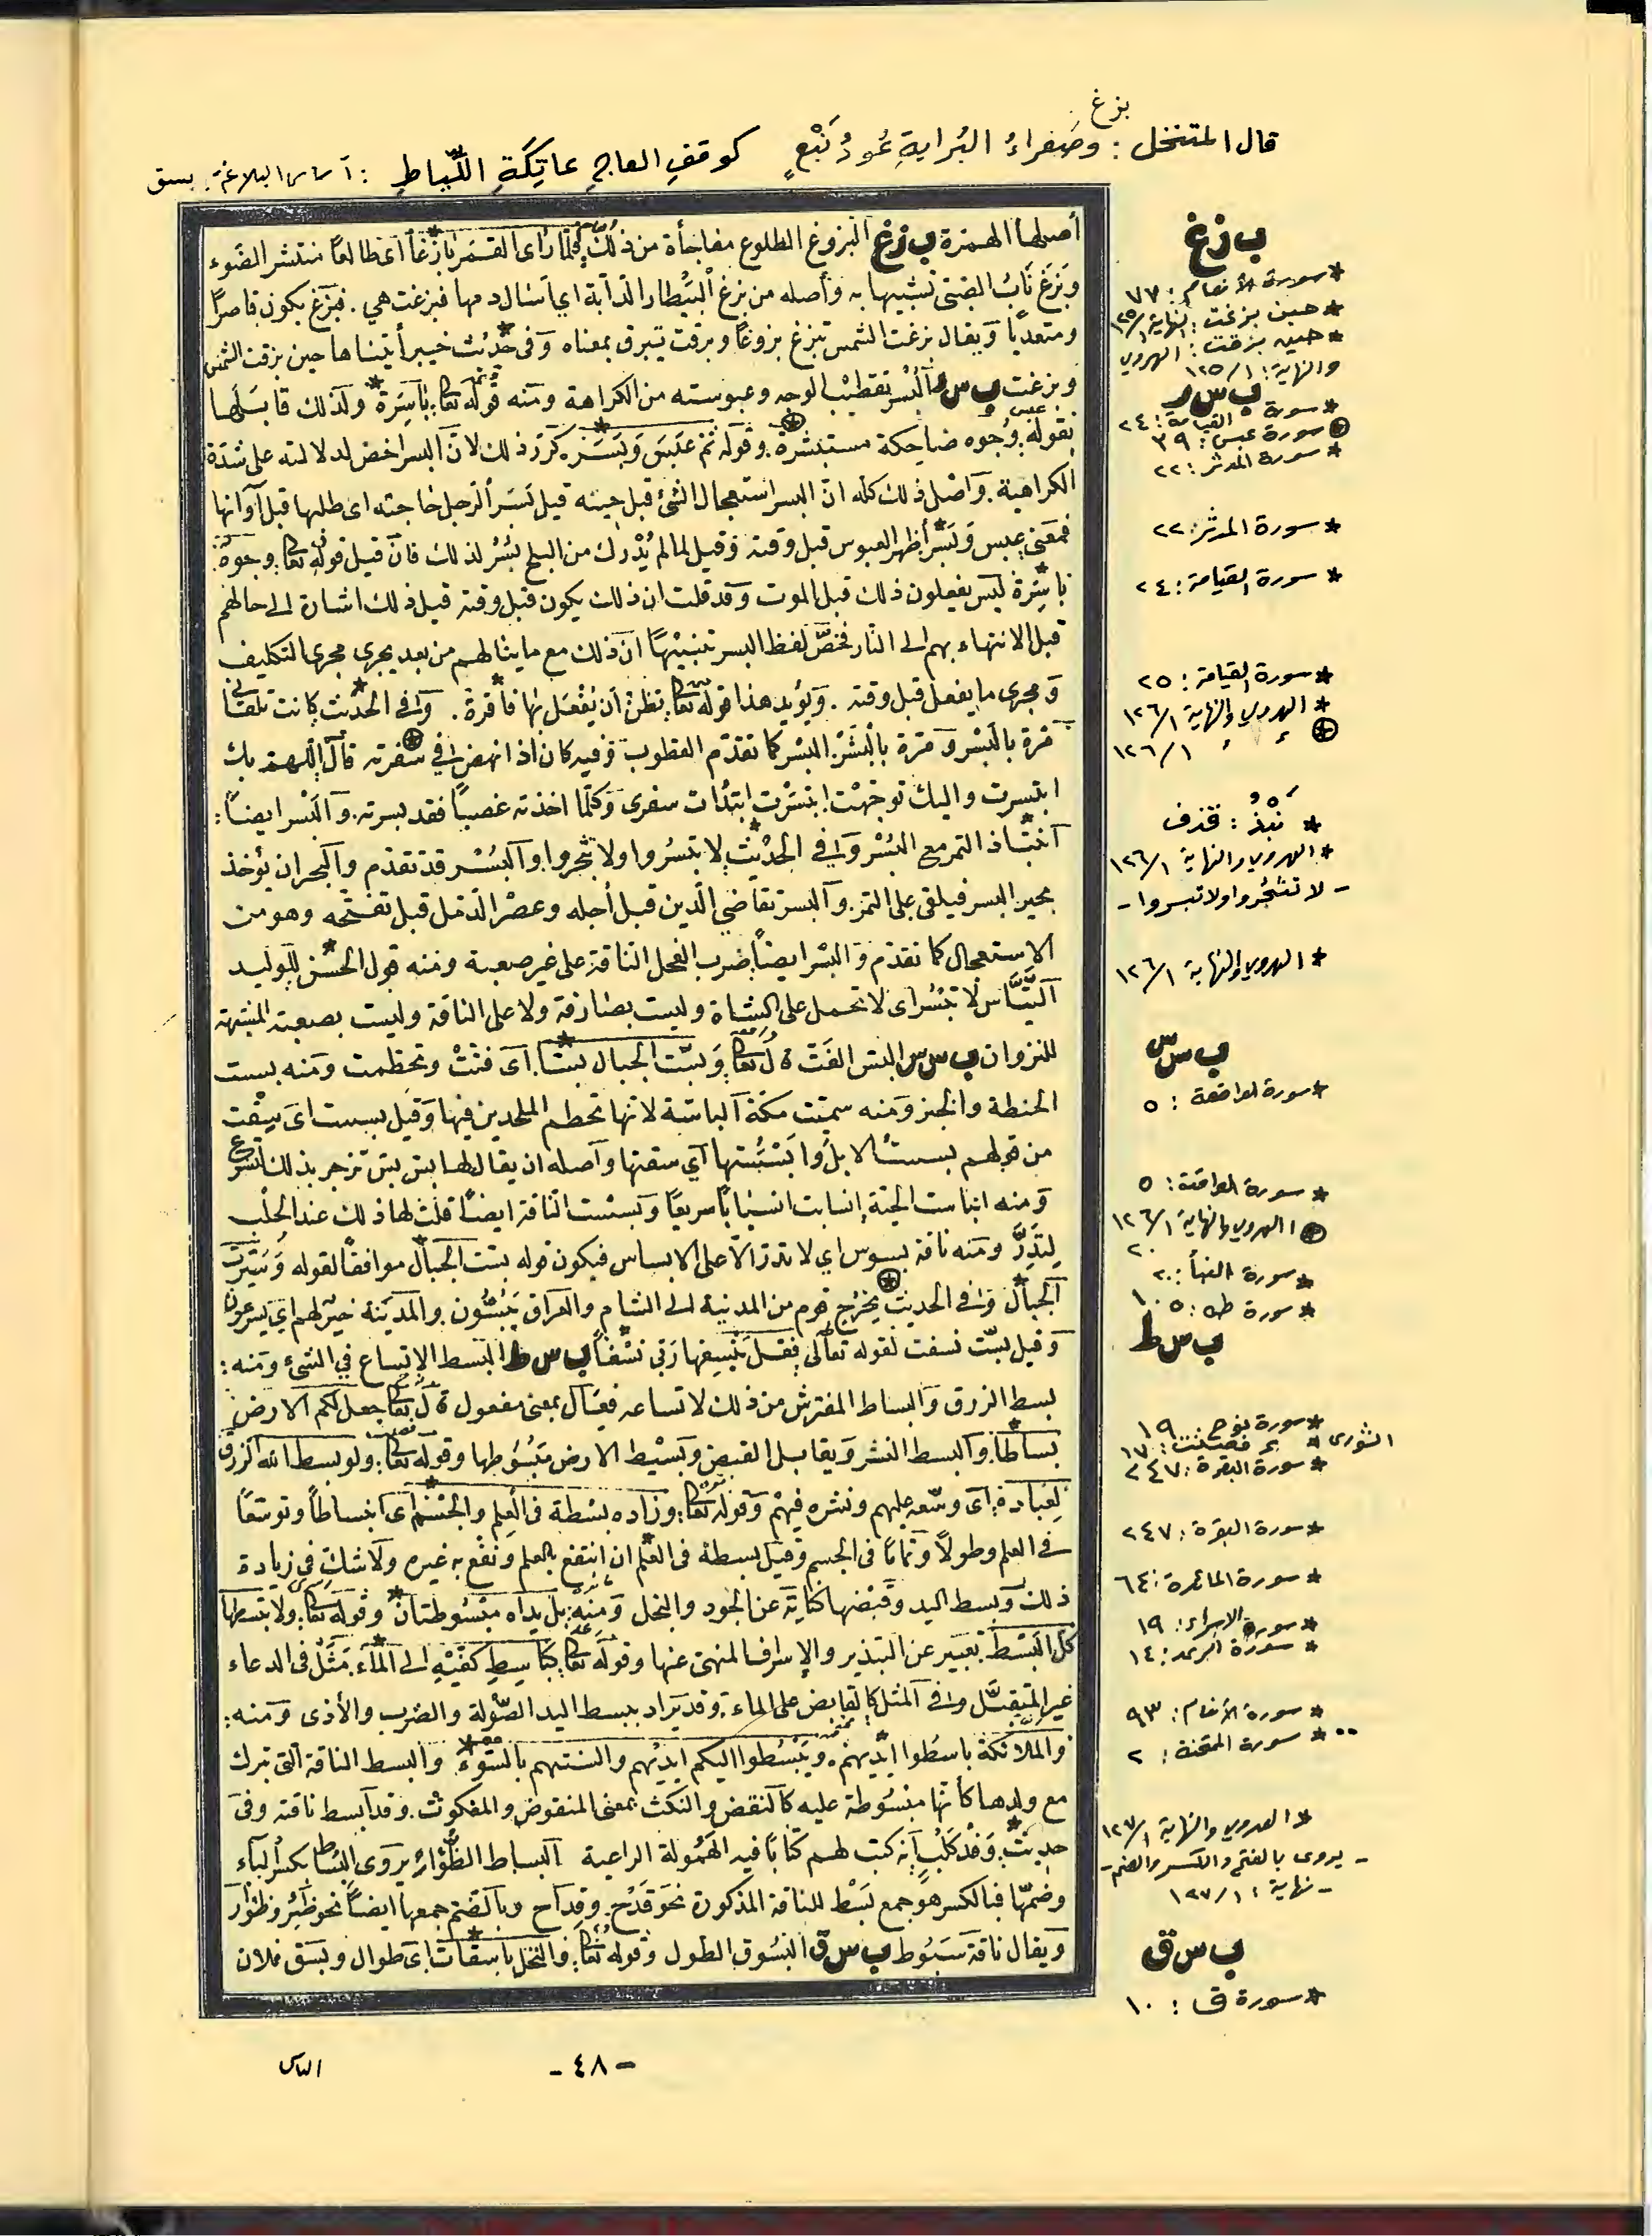 بزغ
قال المتنخل : وصفراءُ البُرايةِ عُودُ نَبْعٍ كوقفِ العاجِ عاتِكَةِ اللِّياطِ : أساس البلاغة: بسق
أصلها الهمزة ب ز غ البزوغ الطلوع مفاجأة من ذلك فلما رأى القمر بازغاً أى طالعاً منتشر الضوء
وبَزَغَ نَابُ الصبى تشبيها به وأصله من بزغ البيطار الدابة اي أسال دمها فبزغت هي . فبزغ يكون قاصرًا
ومتعديا ويقال بزغت الشمس تبزغ بزوغاً وبزقت تبزق بمعناه وفى حديث خيبر أتيناها حين بزقت الشمس
وبزغت ب س ر البسر تقطيب الوجه وعبوسته من الكراهة ومنه قوله تعالى باسرة ولذلك قابلها
بقوله وجوه ضاحكة مستبشرة وقوله ثم عبس وبسر كرر ذلك لان البسر اخص لدلالته على شدة
الكراهية . واصل ذلك كله ان البسر استعجال الشئ قبل حينه قيل بَسَر الرجل حاجته اى طلبها قبل آوانها
فمعنى عبس وبسر أظهر العبوس قبل وقته وقيل لما لم يُدْرك من البلح بُسْر لذلك فان قيل قوله تعالى وجوه
باسرة ليس يفعلون ذلك قبل الموت وقد قلت ان ذلك يكون قبل وقته قيل ذلك اشارة الى حالهم
قبل الانتهاء بهم الى النار فخصّ لفظ البسر تنبيْهًا ان ذلك مع ما ينالهم من بعد يجرى مجرى التكليف
ومجرى ما يفعل قبل وقته . ويؤيد هذا قوله تعالى تظن أن يُفْعَل بها فاقرة . وفي الحديث كانت تلقانى
مرة بالبُسْر ومرة بالبُشر البسر كما تقدم القطوب وفيه كان اذا نهض في سفرته قال اللهم بك
ابتسرت واليك توجهت ابتسرت ابتدأت سفرى وكلما اخذته غصباً فقد بسرته . والبسر ايضاً :
انتباذ التمر مع البُسْر وفي الحديث لا تبسُروا ولا تثجروا والبُسْر قد تقدم والثجر ان يؤخذ
ثجير البسر فيلقى على التمر . والبسر تقاضي الدين قبل أجله وعصْر الدمل قبل تفتحه وهو من
الاستعجال كما تقدم والبسْر ايضاً ضرب الفحل الناقة على غير ضبعة ومنه قول الحسن للوليد
التيّاس لا تبسُر اى لا تحمل على الشاة وليست بصارفة ولا على الناقة وليست بضبعة المشتهية
للنزوان ب س س البس الفَتّ قال تعالى وَبُسّت الجبال بسًّا أى فُتّتْ وتحطمت ومنه بسست
الحنطة والخبز ومنه سميت مكة الباسّة لانها تحطم الملحدين فيها وقيل بسست اى سيقت
من قولهم بسستُ الابل وابسستها أي سقتها وأصله ان يقال لها بس بس تزجر بذلك لتسرع
ومنه انباست الحية انسابت انسيابًا سريعًا وبسست الناقة ايضاً قلت لها ذلك عند الحلب
لِتَدِرَّ ومنه ناقة بسوس اي لا تدر الا على الابساس فيكون قوله بست الجبال موافقًا لقوله وَسيّرت
الجبال وفي الحديث يخرج قوم من المدينة الى الشام والعراق يَبُسُّون . والمدينة خيرٌ لهم أي يسرعون
وقيل بسّت نسفت لقوله تعالى فقل ينسفها ربي نسْفاً ب س ط البسط الاتساع في الشئ ومنه :
بسط الرزق والبساط المفترش من ذلك لاتساعه فعال بمعنى مفعول قال تعالى جعل لكم الارض
بساطاً والبسط النشر ويقابل القبض وبسيْط الارض مبْسُوطها وقوله تعالى ولو بسط الله الرزق
لعباده أى وسّعه عليهم ونشره فيهم وقوله تعالى وزاده بسْطة فى العلم والجسْم اى انبساطاً وتوسّعًا
فى العلم وطولاً وتمامًا فى الجسم وقيل بسطة فى العلم ان انتفع بالعلم ونفع به غيره ولاشك في زيادة
ذلك وبسط اليد وقبْضها كناية عن الجود والبخل ومنه بل يداه مبْسُوطتان وقوله تعالى ولا تبسطها
كل البسْط تعبير عن التبذير والإسراف المنهى عنها وقوله تعالى كَباسِطِ كفّيْه الى الماء مَثَّل فى الدعاء
غير المتقبَّل وفى المثل كالقابض على الماء . وقد يراد ببسط اليد الصّولة والضرب والأذى ومنه :
والملائكة باسطوا ايديهم . ويبْسُطوا اليكم ايديهم والسنتهم بالسّوء والبسط الناقة التى تترك
مع ولدها كأنها مبْسُوطة عليه كالنقض والنكث بمعنى المنقوض والمنكوث . وقد أبسط ناقته وفى
حديث وَفْد كَلْب أنه كتب لهم كتابًا فيه الهَمُولة الراعية البساط الظؤار يروى البساط بكسر الباء
وضمّها فبالكسر هو جمع بَسْط للناقة المذكورة نحو قَدْح . وقِداح وبالضم جمعها ايضاً نحو ظئْر وظؤار
ويقال ناقة بَسُوط ب س ق البُسوق الطول وقوله تعالى والنخل باسقات اى طوال وبسق فلان
ب ز غ
* سورة الأنعام : ٧٧
* حين بزغت : النهاية ١/١٢٥
* حين بزقت : الهروي
والنهاية : ١/١٢٥
ب س ر
* سورة القيامة : ٢٤
سورة عبس : ٣٩
* سورة المدثر : ٢٢
* سورة المدثر : ٢٢
* سورة القيامة : ٢٤
* سورة القيامة : ٢٥
* الهروي والنهاية ١/١٢٦
١/١٢٦
* نَبْذُ : قذف
* الهروي والنهاية ١/١٢٦
- لا تثجُروا ولا تبسروا -
* الهروي والنهاية ١/١٢٦
ب س س
* سورة الواقعة : ٥
* سورة الواقعة : ٥
الهروي والنهاية ١/١٢٦
* سورة النبأ : ٢٠
* سورة طه : ١٠٥
ب س ط
* سورة نوح : ١٩
الشورى * : ١٧
* سورة البقرة : ٢٤٧
* سورة البقرة : ٢٤٧
* سورة المائدة : ٦٤
* سورة الاسراء : ١٩
* سورة الرعد : ١٤
* سورة الأنعام : ٩٣
* سورة الممتحنة : ٢
* الهروي والنهاية ١/١٢٧
- يروى بالفتح والكسر والضم -
- نهاية : ١/١٢٧
ب س ق
* سورة ق : ١٠
- ٤٨ -
الناس